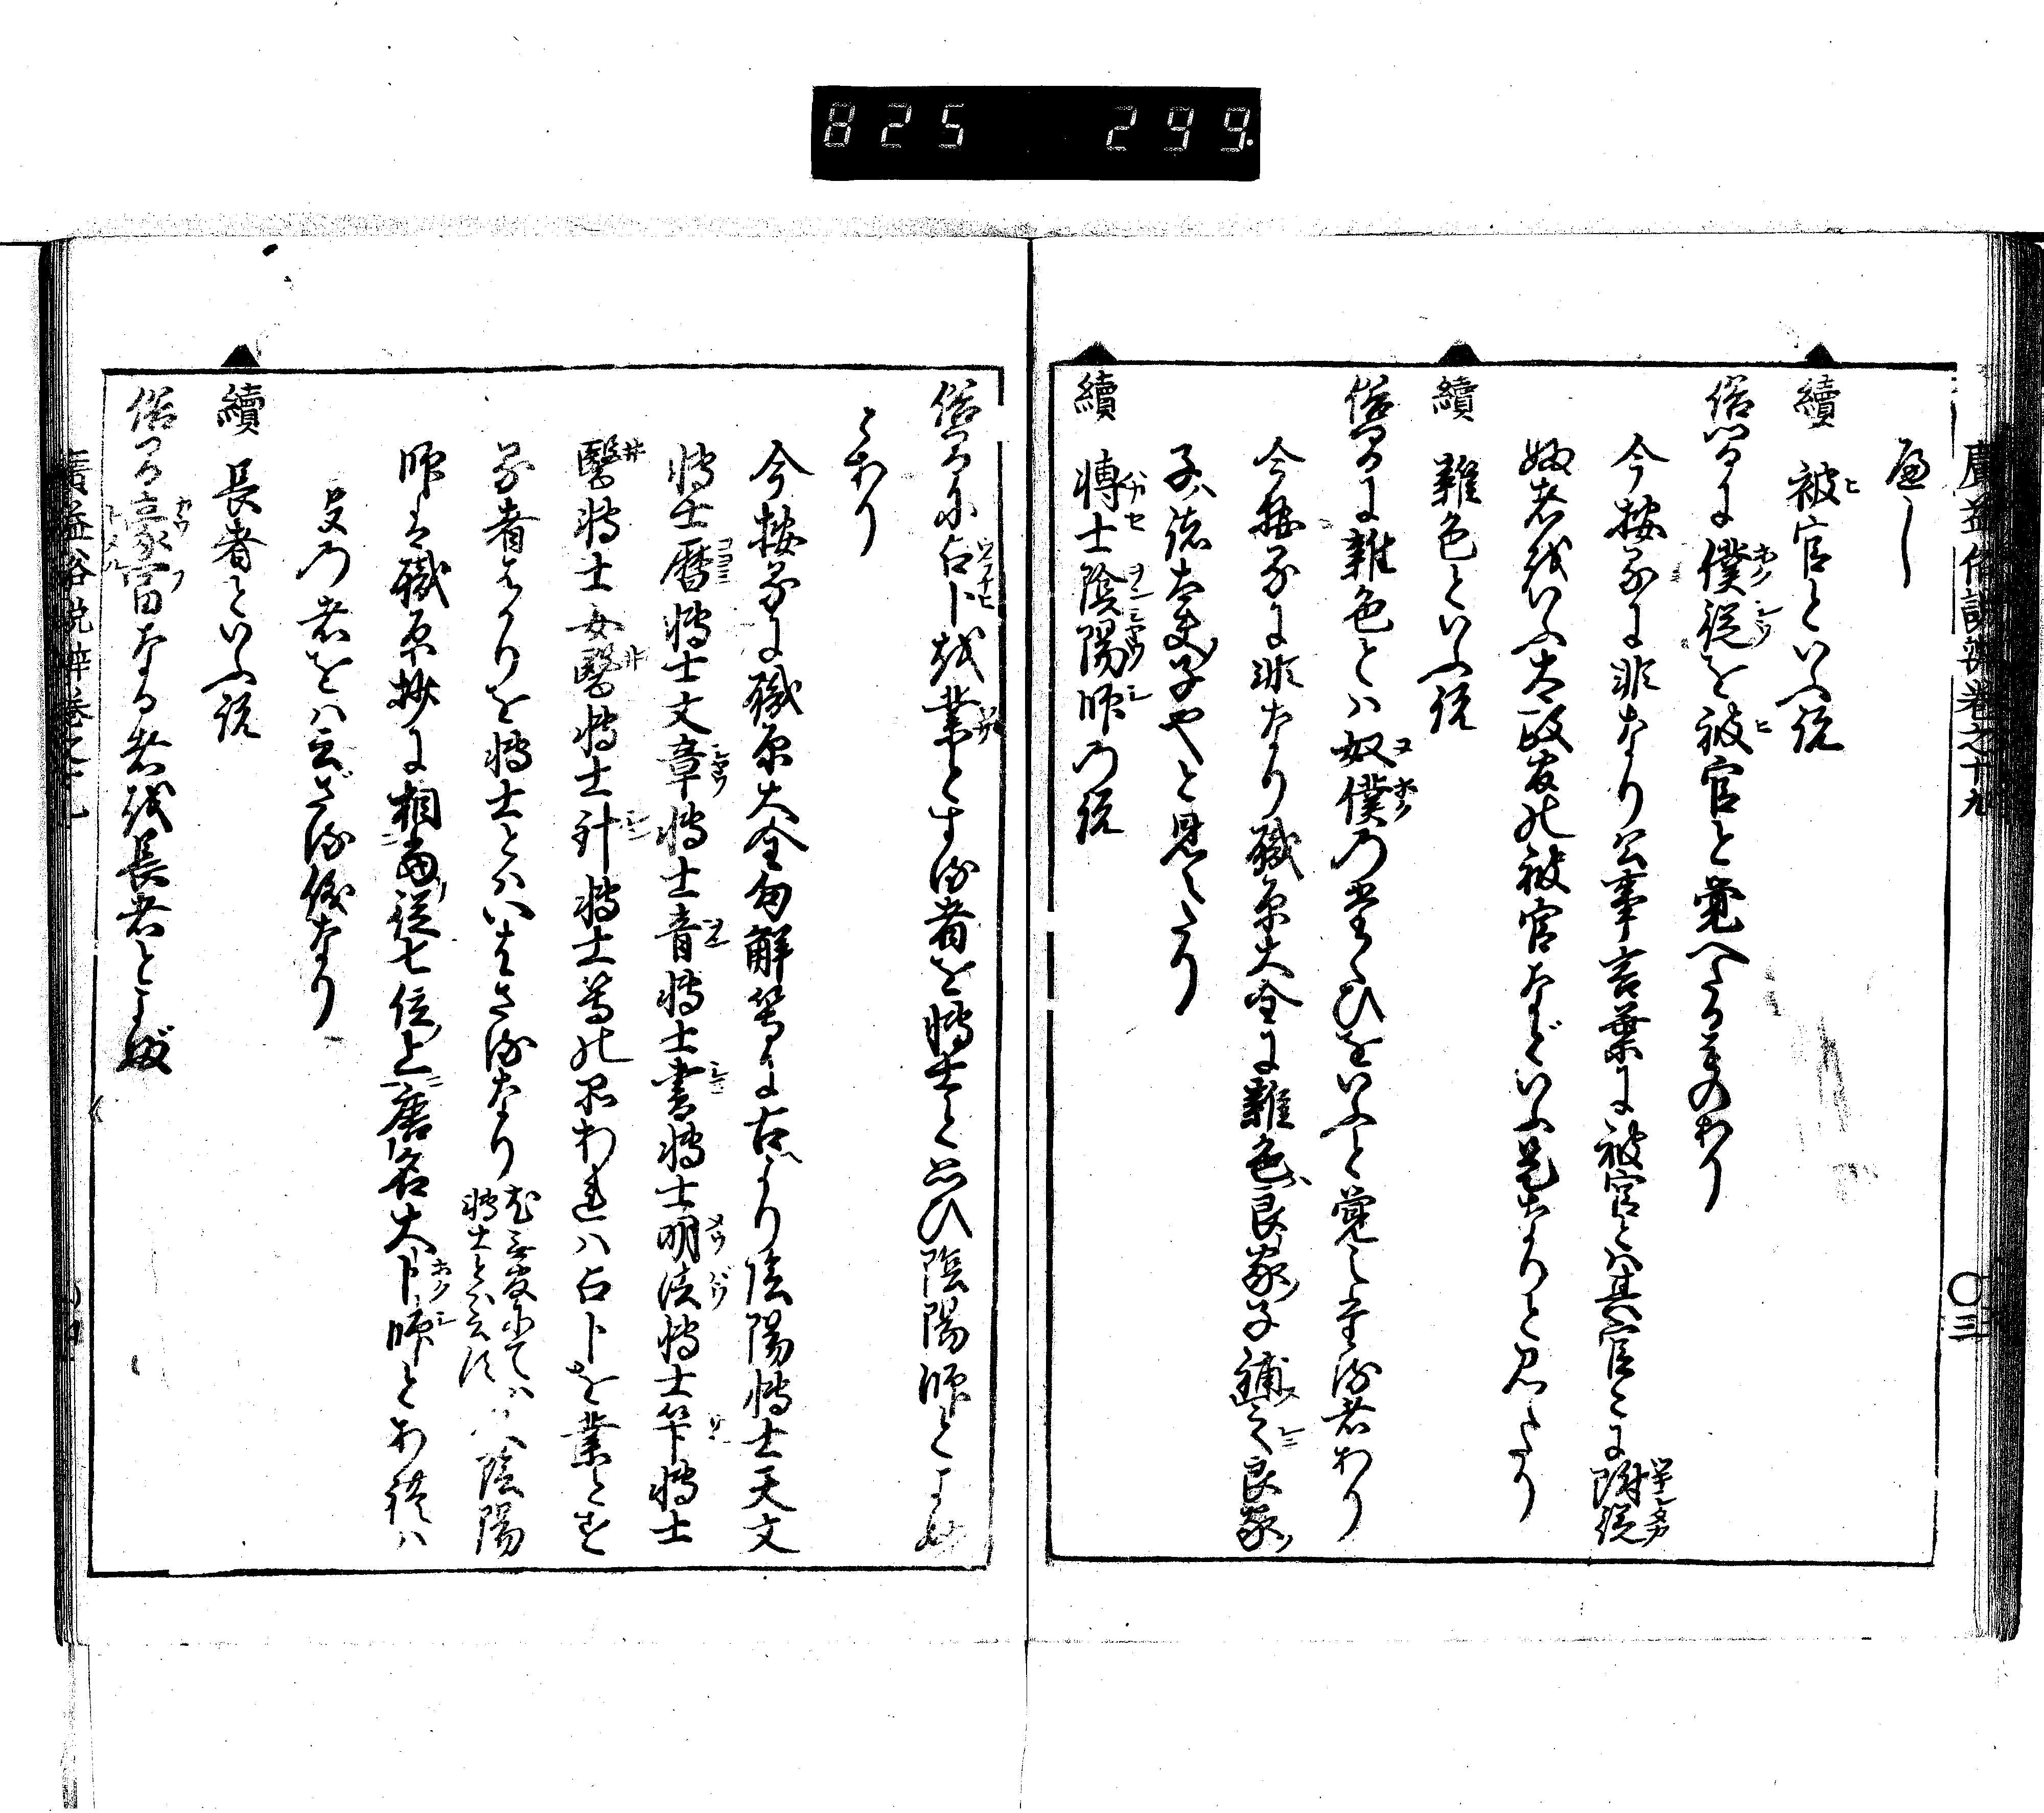 825 299.
廣益俗説辨卷之十九
〇三
べし
續 被官といふ説
俗間に僕従を被官と覚へたるものあり
今按るに非なり公事言葉に被官とは其官〻に附従
する者をいふ太政官の被官などいふ是なりと見へたり
續 雜色といふ説
俗間に雜色とは奴僕のたぐひをいふと覚えたる者あり
今按るに非なり職原大全に雜色良家子補之良家
子諸大夫子也と見えたり
續 博士陰陽師の説
俗間に占卜を業とする者を博士と云ひ陰陽師とよぶ
ことあり
今按るに職原大全句解等に古より陰陽博士天文
博士暦博士文章博士音博士書博士明法博士竿博士
醫博士女醫博士針博士等の品あれば占卜を業とす
る者ばかりを博士とはいはざるなり
博士とは云ず 陰陽
師は職原抄に相當從七位上唐名大卜師とあれば
の者をば云ざる儀なり
續 長者といふ説
俗間豪富なる者を長者とよぶ
廣益俗説辨卷之十九